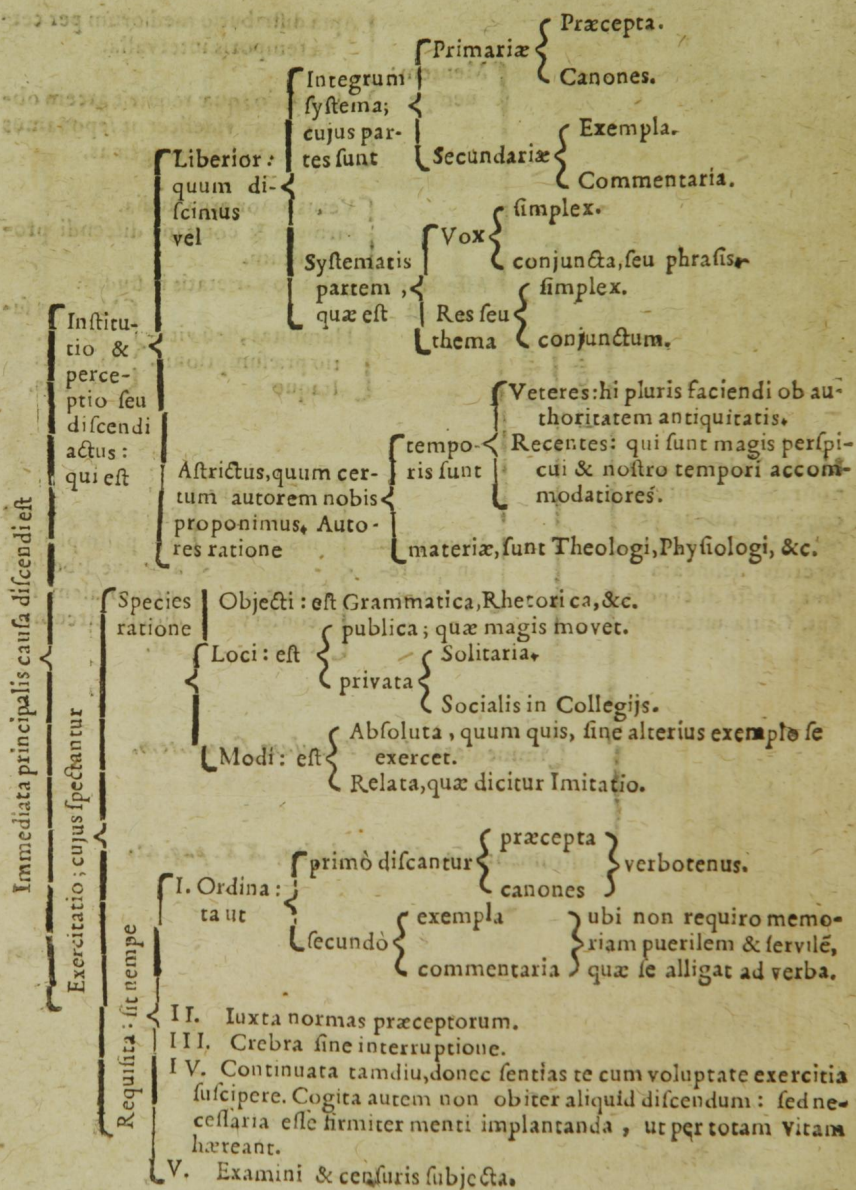 Immediata principalis causa discendi est
Institu-
tio &
perce-
ptio seu
discendi
actus:
qui est
Liberior:
quum di-
scimus
vel
Integrum
systema;
cujus par-
tes sunt
Primariæ
Præcepta.
Canones.
Secundariæ
Exempla.
Commentaria.
Systematis
partem,
quæ est
Vox
simplex.
conjuncta, seu phrasis.
Res seu
thema
simplex.
conjunctum.
Astrictus, quum cer-
tum autorem nobis
proponimus. Auto-
res ratione
tempo-
ris sunt
Veteres: hi pluris faciendi ob au-
thoritatem antiquitatis.
Recentes: qui sunt magis perspi-
cui & nostro tempori accom-
modatiores.
materiæ, sunt Theologi, Physiologi, &c.
Exercitatio; cujus spectantur
Species
ratione
Objecti: est Grammatica, Rhetorica, &c.
Loci: est
publica; quæ magis movet.
privata
Solitaria.
Socialis in Collegijs.
Modi: est
Absoluta, quum quis, sine alterius exemplo se
exercet.
Relata, quæ dicitur Imitatio.
Requisita: sit nempe
I. Ordina:
ta ut
primò discantur
præcepta
canones
verbotenus.
secundò
exempla
commentaria
ubi non requiro memo-
riam puerilem & servilē,
quæ se alligat ad verba.
II. Iuxta normas præceptorum.
III. Crebra sine interruptione.
IV. Continuata tamdiu, donec sentias te cum voluptate exercitia
suscipere. Cogita autem non obiter aliquid discendum: sed ne-
cessaria esse firmiter menti implantanda, ut per totam vitam
hæreant.
V. Examini & censuris subjecta.